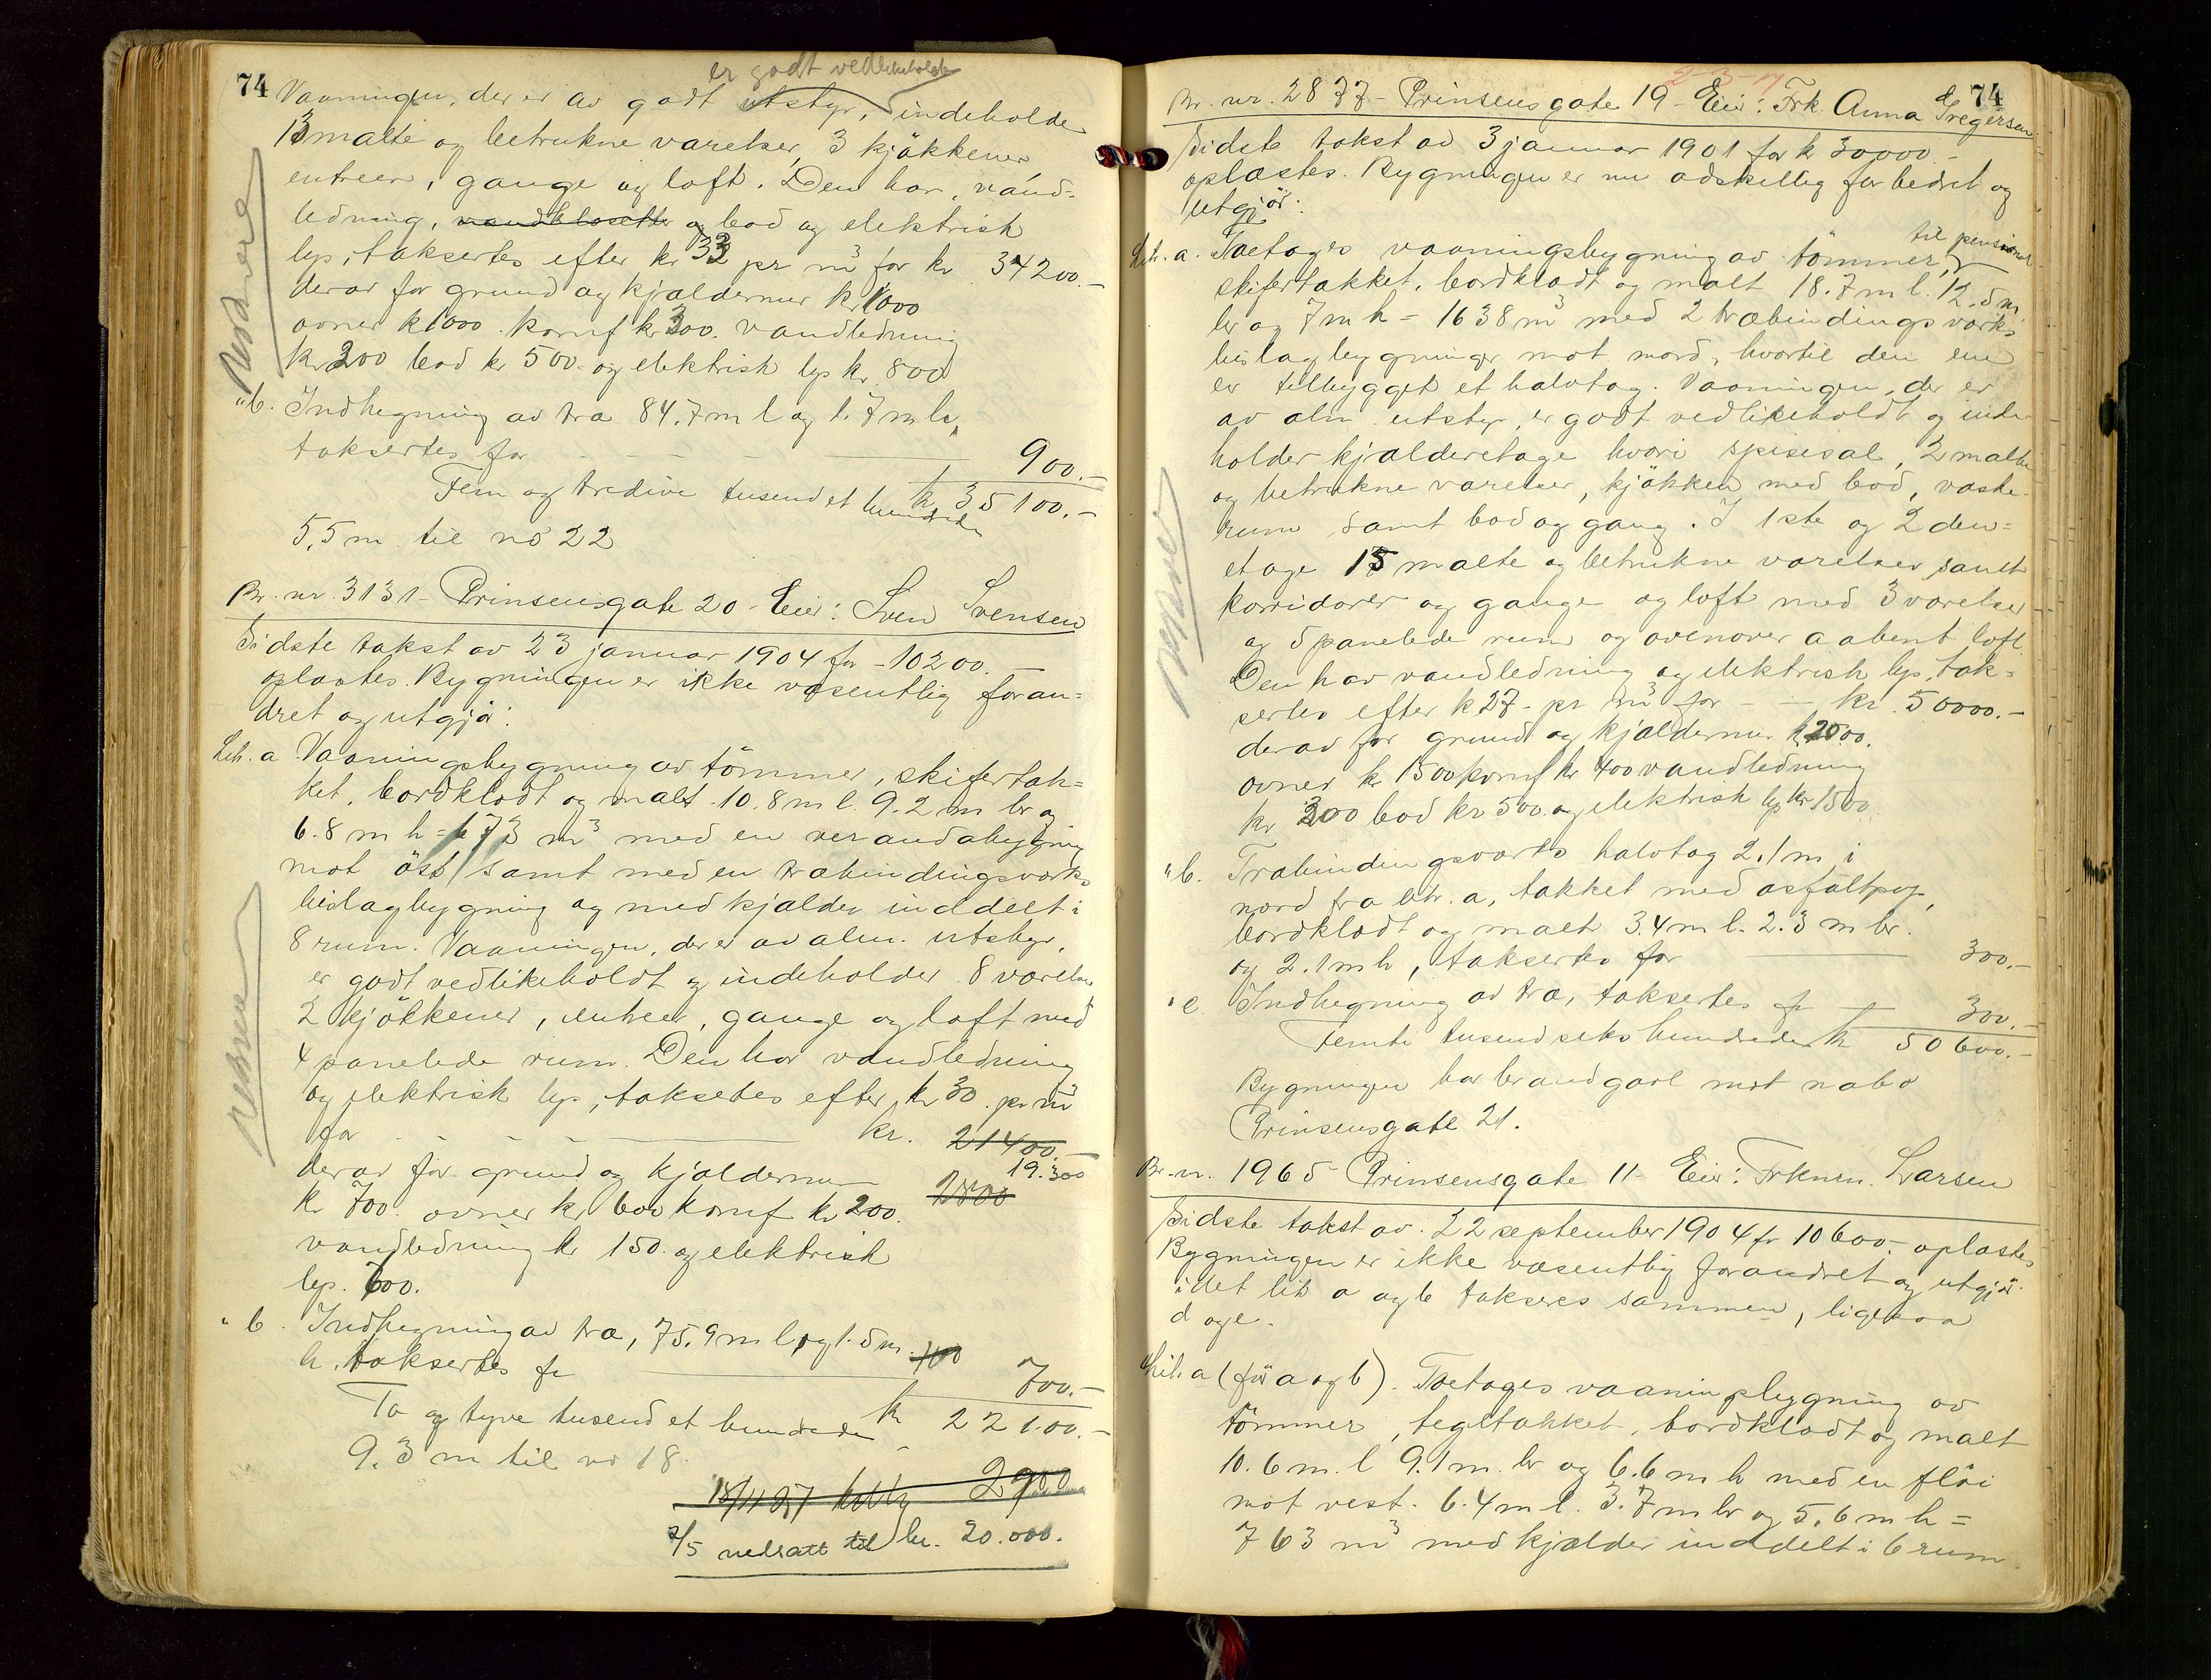 er godt vedlikeholdt
74 Vaaningen, der er av godt utstyr, indeholder
13 malte og betrukne værelser, 3 kjökkener
entreer, gange og loft. Den har vand-
ledning, vandklosetter og bad og elektrisk
lys, taksertes efter kr 33 pr m³ for kr 34200.-
derav for grund og kjældermur kr 1000
ovner kr 1000. komf kr 300. vandledning
kr 200 bad kr 500- og elektrisk lys kr. 800
"b. Indhegning av træ 84.7 m l og 1.7 m h,
taksertes for 900.-
kr 35100.-
Fem og tredive tusend et hundrede
5.5 m til no 22
Br. nr. 3131 - Prinsensgate 20 - Eier: Sven Svensen
Sidste takst av 23 januar 1904 for - 10200.-
oplæstes. Bygningen er ikke væsentlig foran=
dret og utgjör:
Lit. a Vaaningsbygning av tömmer, skifertak=
ket, bordklædt og malt. 10.8 m l. 9.2 m br og
6.8 m h = 673 m³ med en verandabygning
mot öst samt med en træbindingsverks
bislagbygning og med kjælder inddelt i
8 rum. Vaaningen, der er av alm. utstyr,
er godt vedlikeholdt og indeholder 8 værelser
2 kjökkener, entree, gange og loft med
4 panelede rum. Den har vandledning
og elektrisk lys, taksertes efter kr 30 pr m³
for kr. 21400.-
19.300
derav for grund og kjældermur 2800
kr 700. ovner kr 600 komf kr 200.
vandledning kr 150. og elektrisk
lys. 600.
" b. Indhegning av træ, 75.9 m l og 1.5 m. 100
h. taksertes for 700.-
To og tyve tusend et hundrede kr 22100.-
9.3 m til no 18.
2900
2/5 nedsatt til kr. 20.000.
2-3-17
74
Br. nr. 2877 - Prinsensgate 19 - Eier: Frk. Anna Gregersen
Sidste takst av 3 januar 1901 for kr 30000.-
oplæstes. Bygningen er nu adskillig forbedret og
utgjör:
til pensionat
Lit. a. Toetages vaaningsbygning av tömmer,
skifertækket, bordklædt og malt 18.7 m l. 12.5 m
br og 7 m h = 1638 m³ med 2 træbindingsverks
bislagbygninger mot nord, hvortil den ene
er tilbygget et halvtag. Vaaningen, der er
av alm utstyr, er godt vedlikeholdt og inde-
holder kjælderetage hvori spisesal, 2 malte
og betrukne værelser, kjökken med bod, vaske-
rum samt bod og gang. I 1ste og 2den=
etage 15 malte og betrukne værelser, samt
korridorer og gange og loft med 3 værelser
og 5 panelede rum og ovenover aabent loft
Den har vandledning og elektrisk lys, tak=
sertes efter kr 27.- pr m³ for kr. 50000.-
derav for grund og kjældermur kr 2000.
ovner kr 1500 komf kr 400 vandledning
kr 300 bad kr 500. og elektrisk lys kr 1500
"b. Træbindingsverks halvtag 2.1 m i
nord fra litr. a, tækket med asfaltpap,
bordklædt og malt 3.4 m l. 2.3 m br.
og 2.1 m h, taksertes for 300.-
" c Indhegning av træ, taksertes for 300.-
Femti tusend seks hundrede kr 50600.-
Bygningen har brandgavl mot nabo
Prinsensgate 21.
Br. nr. 1965 - Prinsensgate 11 - Eier: Frknrn. Larsen
Sidste takst av 22 september 1904 for 10600.- oplæstes
Bygningen er ikke væsentlig forandret og utgjör
idet lit a og b takseres sammen, ligesaa
d og e.
Lit. a (för a og b). Toetages vaaningsbygning av
tömmer, tegltækket, bordklædt og malt
10.6 m. l 9.1 m. br og 6.6 m h med en flöi
mot vest. 6.4 m l. 3.7 m br og 5.6 m h =
763 m³ med kjælder inddelt i 6 rum.